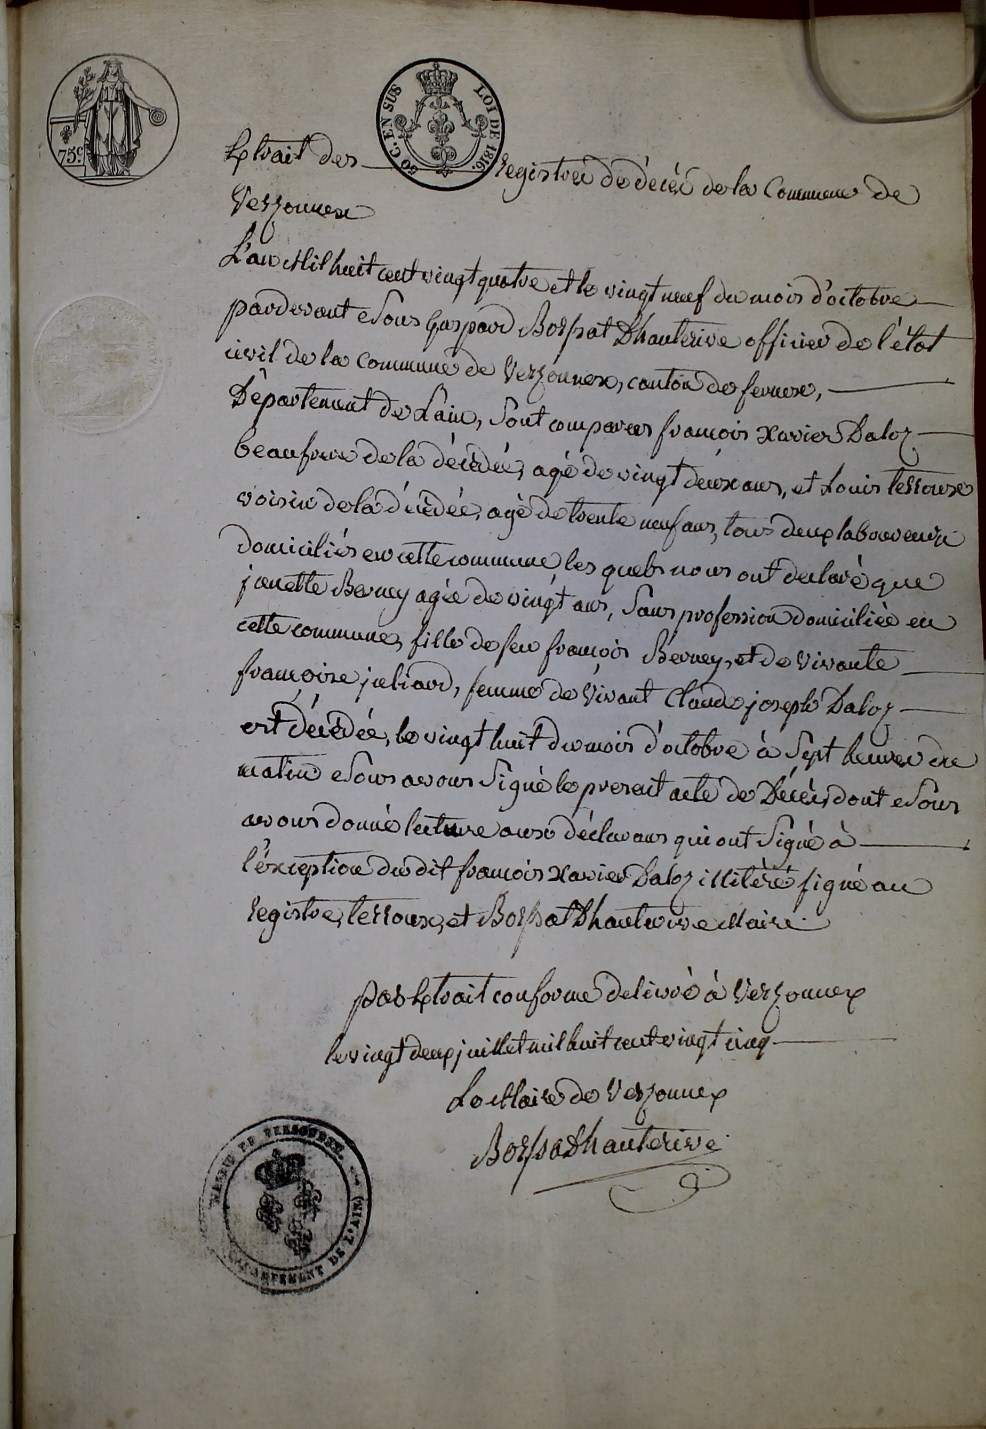 75c
50 C. EN SUS LOI DE 1816.
Extrait des registres de décès de la Commune de
Versonnex
L'an Mil huit cent vingt quatre et le vingt neuf du mois d'octobre
pardevant Nous Gaspard Borssat Dhauterive officier de l'état
civil de la Commune de Versonnex, canton de fernex,
Département de Lain, Sont comparus françois Xavier Daloz
beaufrere de la décèdée, agé de vingt deux ans, et Louis terroux
voisin de la décèdée, agé de trente neuf ans, tous deux laboureurs
domiciliés en cette commune les quels nous ont déclaré que
janette Berney agée de vingt ans, Sans profession domiciliée en
cette commune, fille de feu françois Berney, et de vivante
françoise juliard, femme de vivant Claude joseph Daloz
est décèdée, le vingt huit du mois d'octobre à Sept heures du
matin Nous avons Signé le present acte de Décès, dont Nous
avons donné lecture aux déclarans qui ont Signé à
l'exception du dit françois Xavier Daloz illitéré signé au
registre, terroux, et Borssat Dhauterive Maire
par Extrait conforme delivré à Versonnex
le vingt deux juillet mil huit cent vingt cinq
Le Maire de Versonnex
Borssat Dhauterive
MAIRIE DE VERSONNEX.
DEPARTEMENT DE L'AIN